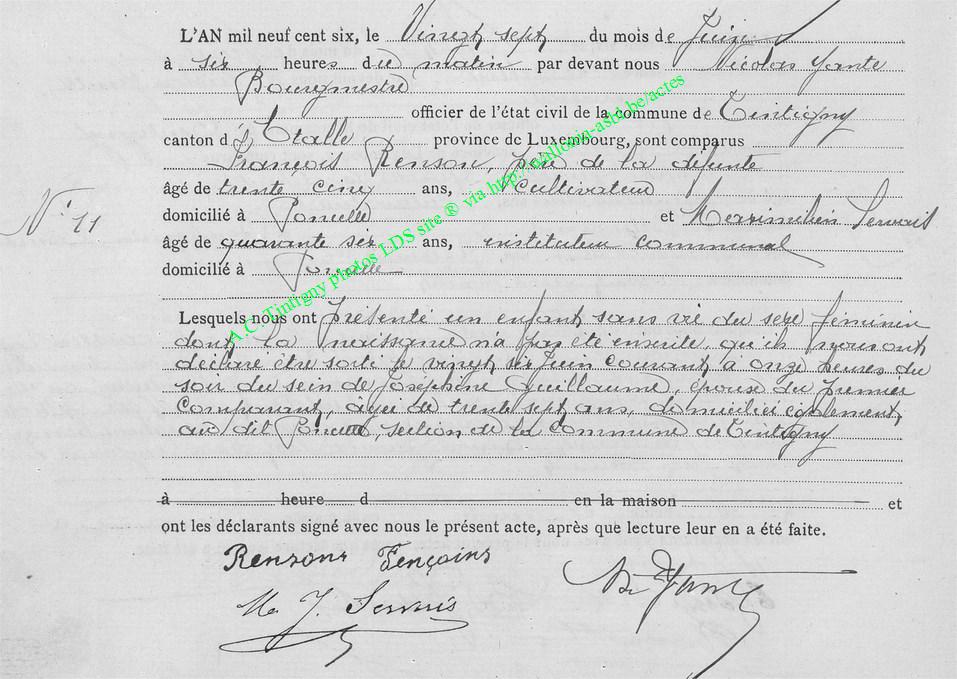 L'AN mil neuf cent six, le Vingt sept du mois de Juin
à six heures du matin par devant nous Nicolas Yante
Bourgmestre
officier de l'état civil de la commune de Tintigny
canton d'Etalle province de Luxembourg, sont comparus
François Renson, père de la défunte
âgé de trente cinq ans, Cultivateur
domicilié à Poncelle et Maximilien Servais
N° 11
âgé de quarante six ans, instituteur communal
domicilié à Poncelle
Lesquels nous ont présenté un enfant sans vie du sexe féminin
dont la naissance n'a pas été inscrite qu'ils nous ont
déclaré être sorti le vingt six Juin courant à onze heures du
soir du sein de Joséphine Guillaume, épouse du premier
Comparant, âgée de trente sept ans, domiciliée également
au dit Poncelle, section de la commune de Tintigny
à heure d en la maison et
ont les déclarants signé avec nous le présent acte, après que lecture leur en a été faite.
Renson Fençoins
J. Servais
Yante
A.C. Tintigny photos LDS site ® via http://wallonia-asbl.be/actes